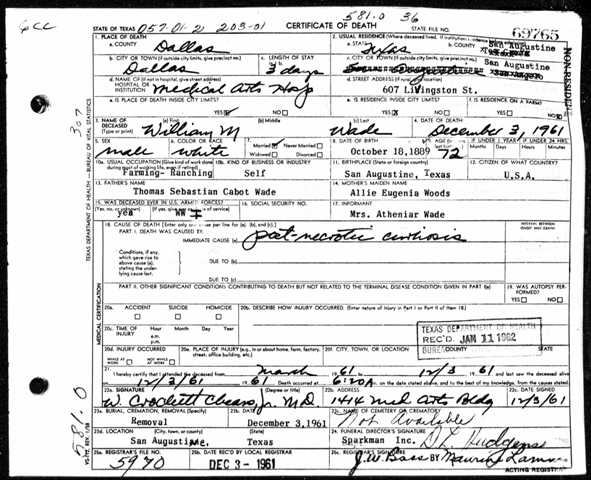 6CC
STATE OF TEXAS 057-01-2) 203-01 CERTIFICATE OF DEATH 581.0 36 STATE FILE NO. 69765
1. PLACE OF DEATH 2. USUAL RESIDENCE (Where deceased lived. If institution: residence before admission)
a. COUNTY Dallas a. STATE Texas b. COUNTY San Augustine
b. CITY OR TOWN (If outside city limits, give precinct no.) c. LENGTH OF STAY c. CITY OR TOWN (If outside city limits, give precinct no.)
Dallas 3 days San Augustine
d. NAME OF (If not in hospital, give street address) d. STREET ADDRESS
HOSPITAL OR INSTITUTION Medical Arts Hosp 607 Livingston St.
e. IS PLACE OF DEATH INSIDE CITY LIMITS? YES NO e. IS RESIDENCE INSIDE CITY LIMITS? YES NO f. IS RESIDENCE ON A FARM? YES NO
NON-RESIDENT
3. NAME OF DECEASED (Type or print) (a) First (b) Middle (c) Last 4. DATE OF DEATH
William M Wade December 3, 1961
5. SEX 6. COLOR OR RACE 7. Married Never Married Widowed Divorced 8. DATE OF BIRTH 9. AGE IF UNDER 1 YEAR IF UNDER 24 HRS.
male white October 18.1889 72
10a. USUAL OCCUPATION (Give kind of work done during most of working life, even if retired) 10b. KIND OF BUSINESS OR INDUSTRY 11. BIRTHPLACE (State or foreign country) 12. CITIZEN OF WHAT COUNTRY?
Farming- Ranching Self San Augustine, Texas U.S.A.
13. FATHER'S NAME 14. MOTHER'S MAIDEN NAME
Thomas Sebastian Cabot Wade Allie Eugenia Woods
15. WAS DECEASED EVER IN U.S. ARMED FORCES? 16. SOCIAL SECURITY NO. 17. INFORMANT
(Yes, no, or unknown) (If yes, give war or dates of service)
yes WW I Mrs. Atheniar Wade
18. CAUSE OF DEATH (Enter only one cause per line for (a), (b), and (c).) INTERVAL BETWEEN ONSET AND DEATH
PART I. DEATH WAS CAUSED BY:
IMMEDIATE CAUSE (a) post-necrotic cirrhosis
Conditions, if any, which gave rise to above cause (a), stating the underlying cause last.
DUE TO (b)
DUE TO (c)
PART II. OTHER SIGNIFICANT CONDITIONS CONTRIBUTING TO DEATH BUT NOT RELATED TO THE TERMINAL DISEASE CONDITION GIVEN IN PART I(a) 19. WAS AUTOPSY PERFORMED?
YES NO
20a. ACCIDENT SUICIDE HOMICIDE 20b. DESCRIBE HOW INJURY OCCURRED. (Enter nature of injury in Part I or Part II of item 18.)
20c. TIME OF INJURY Hour Month Day Year
a.m.
p.m.
TEXAS DEPARTMENT OF HEALTH
REC'D JAN 11 1962
BUREAU
20d. INJURY OCCURRED WHILE AT WORK NOT WHILE AT WORK 20e. PLACE OF INJURY (e.g., in or about home, farm, factory, street, office building, etc.) 20f. CITY, TOWN, OR LOCATION COUNTY STATE
21. I hereby certify that I attended the deceased from March 1961. to 12/3 1961 and last saw the deceased alive
12/3/61 1961 Death occurred at 6:20A m. on the date stated above, and to the best of my knowledge, from the causes stated.
22a. SIGNATURE 22b. ADDRESS 22c. DATE SIGNED
W. Crockett Jr. M.D. 1414 Med Arts Bldg 12/3/61
23a. BURIAL, CREMATION, REMOVAL (Specify) 23b. DATE 23c. NAME OF CEMETERY OR CREMATORY
Removal December 3,1961 Not Available
23d. LOCATION (City, town, or county) (State) 24. FUNERAL DIRECTOR'S SIGNATURE
San Augustine, Texas Sparkman Inc. Hudgens
25a. REGISTRAR'S FILE NO. 25b. DATE REC'D BY LOCAL REGISTRAR
5970 DEC 3 - 1961 J.W. Bass BY
ACTING REGISTRAR
TEXAS DEPARTMENT OF HEALTH—BUREAU OF VITAL STATISTICS
MEDICAL CERTIFICATION
307
581.0